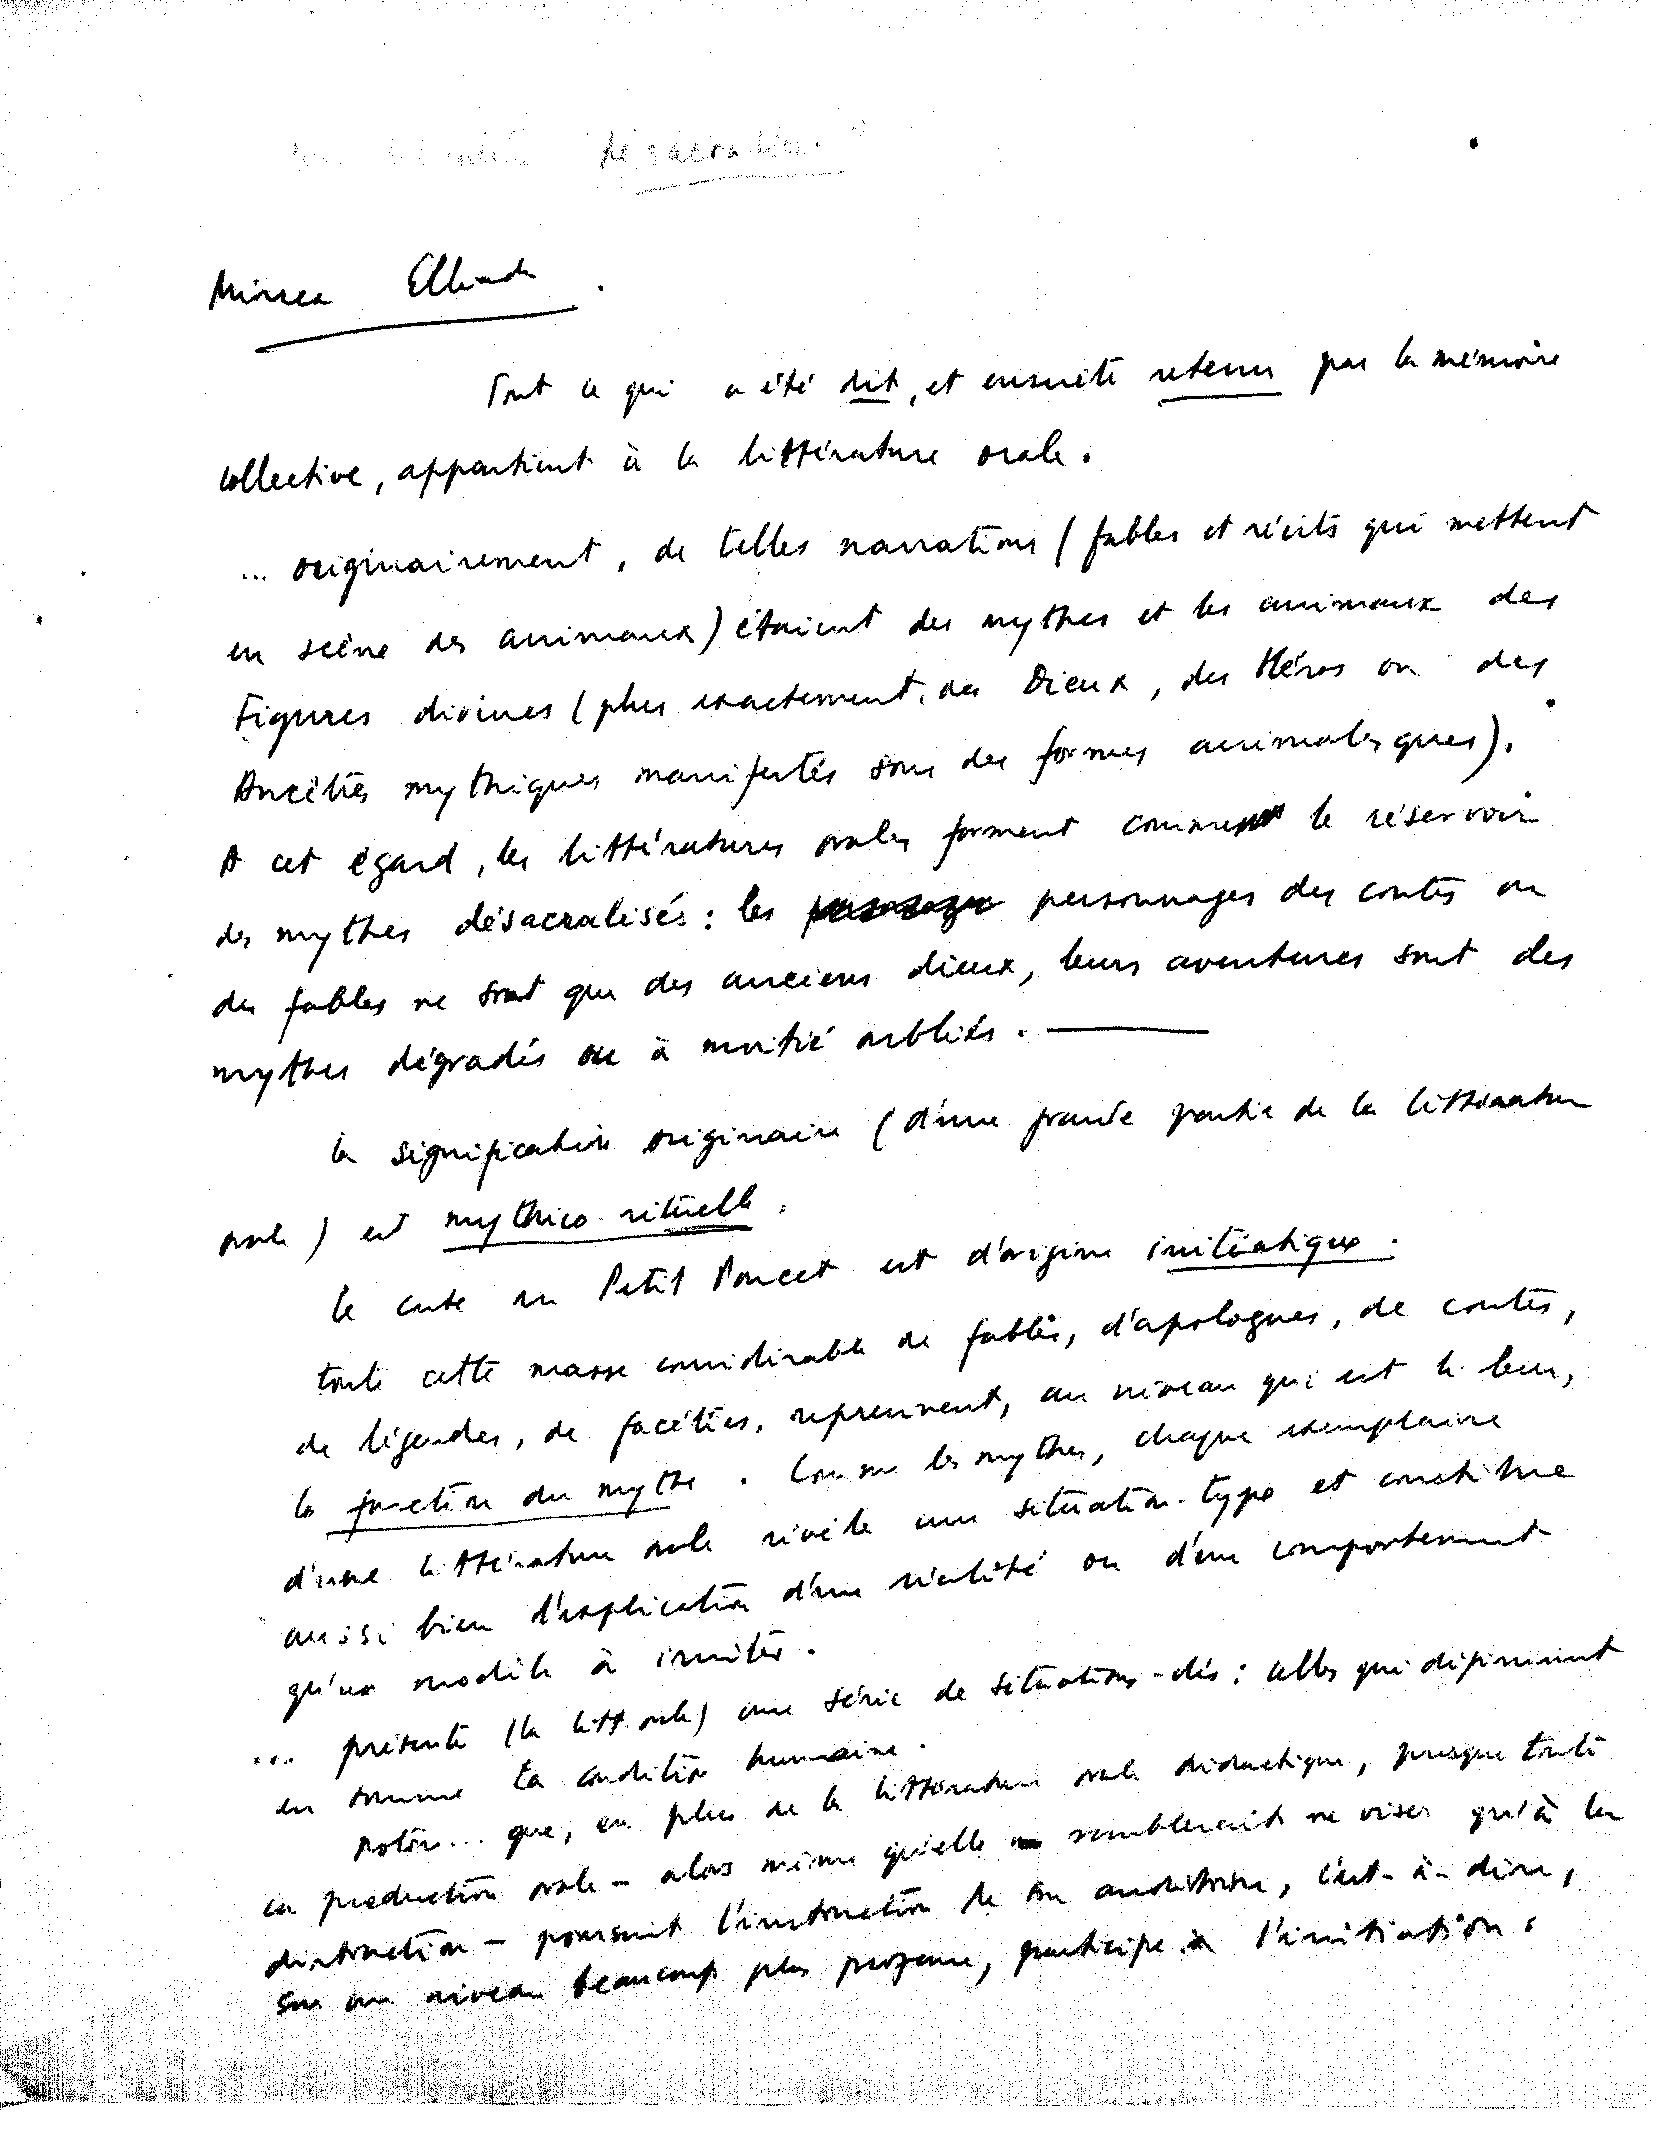 Mircea Elliade.
Tout ce qui a été dit, et ensuite retenu par la mémoire
collective, appartient à la littérature orale.
... originairement, de telles narrations (fables et récits qui mettent
en scène des animaux) étaient des mythes et les animaux des
Figures divines (plus exactement, des Dieux, des Héros ou des
Ancêtres mythiques manifestés sous des formes animalesques).
A cet égard, les littératures orales forment comme le réservoir
des mythes désacralisés : les personnages des contes ou
des fables ne sont que des anciens dieux, leurs aventures sont des
mythes dégradés ou à moitié oubliés.
la signification originaire (d'une grande partie de la littérature
orale) est mythico-rituelle.
le conte du Petit Poucet est d'origine initiatique.
toute cette masse considérable de fables, d'apologues, de contes,
de légendes, de facéties, reprennent, au niveau qui est le leur,
la fonction du mythe. Comme les mythes, chaque exemplaire
d'une littérature orale révèle une situation-type et constitue
aussi bien l'explication d'une réalité ou d'un comportement
qu'un modèle à imiter.
... présente (la litt. orale) une série de situations-clés : celles qui définissent
en somme la condition humaine.
noter... que, en plus de la littérature orale didactique, presque toute
la production orale - alors même qu'elle semblerait ne viser qu'à la
distraction - poursuit l'instruction de son auditoire, c'est-à-dire,
sur un niveau beaucoup plus profane, participe à l'initiation.